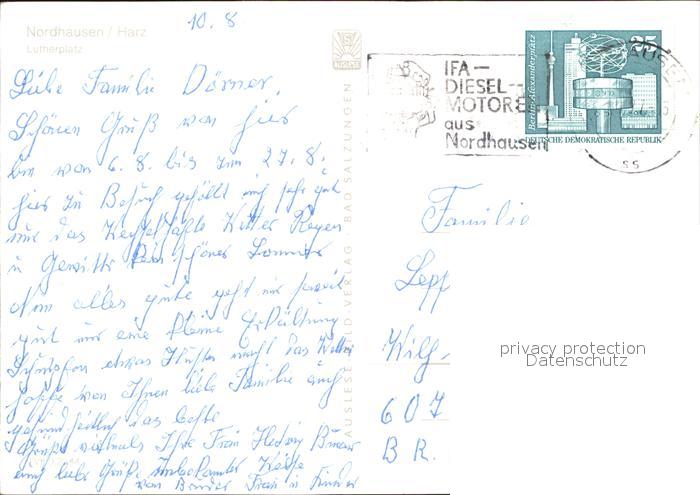 10.8
Nordhausen / Harz
Lutherplatz
Liebe Familie Dörner,
Schönen Gruß von hier
bin von 6.8. bis zum 27.8.
hier zu Besuch gefällt mir sehr gut
nur das Wechselhafte Wetter Regen
u Gewitter kein schöner Sommer
alles gute geht mir soweit
gut nur eine kleine Erkältung
Schnupfen etwas Husten macht das Wetter
hoffe von Ihnen liebe Familie auch
gesundheitlich das beste
Grüße vielmals Ihre Frau Hedwig
auch liebe Grüße unbekannter Weise
von Bruder Frau u Kinder
AUSLESE BILD-VERLAG BAD SALZUNGEN
IFA-
DIESEL-
MOTOREN
aus
Nordhausen
25
Berlin-Alexanderplatz
DEUTSCHE DEMOKRATISCHE REPUBLIK
ss
Familie
Lepp
Wilh
607
BR.
privacy protection
Datenschutz